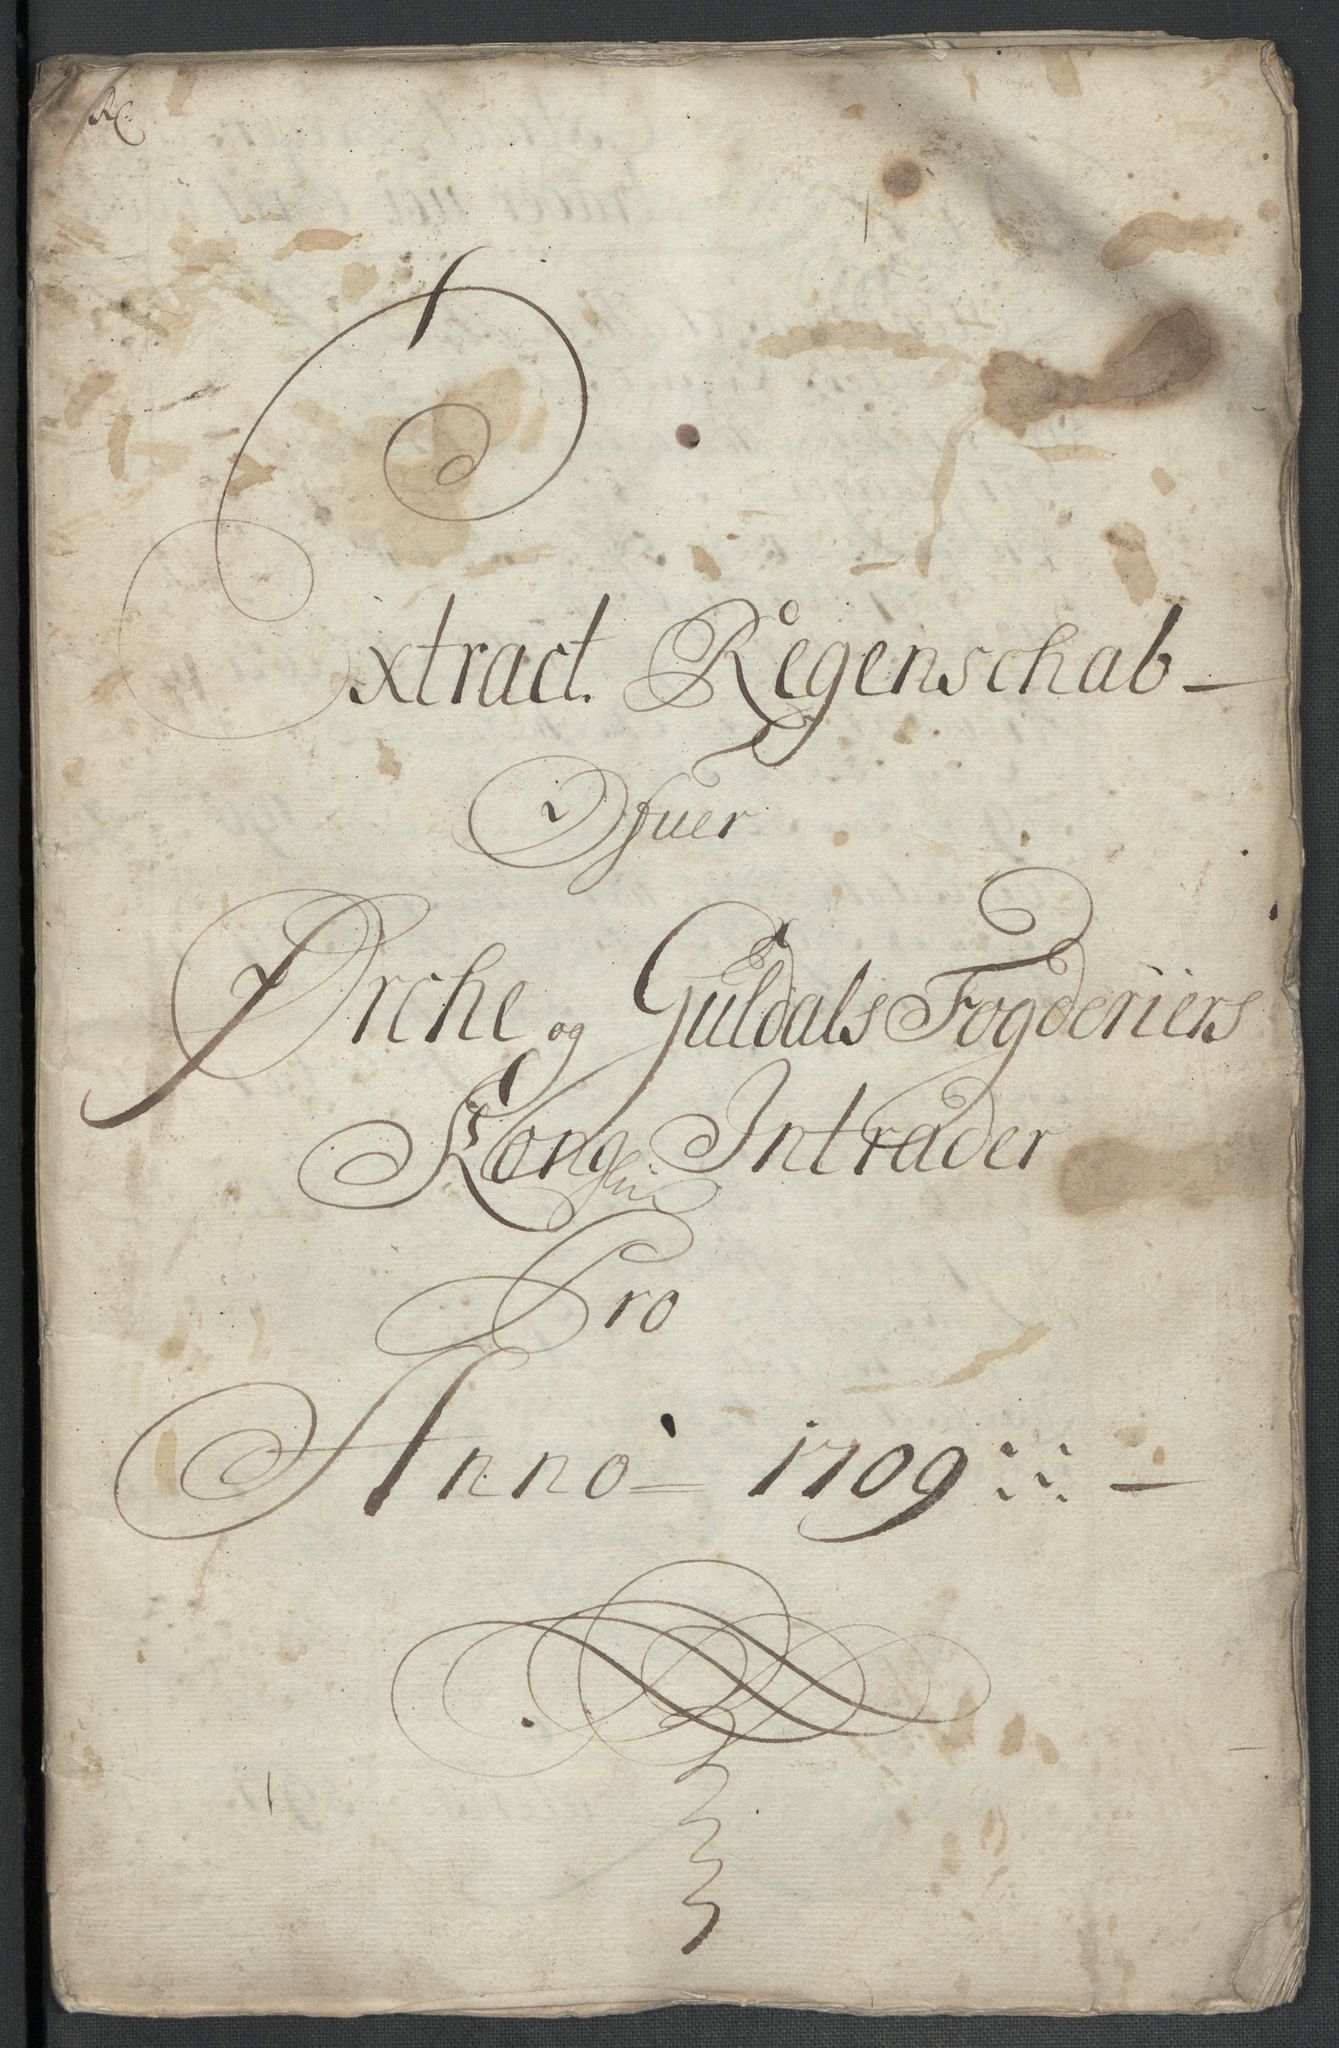 Extract Regenschab
Ofuer
Ørche og Guldals Fogderiers
Kong Intrader
Pro
Anno 1709